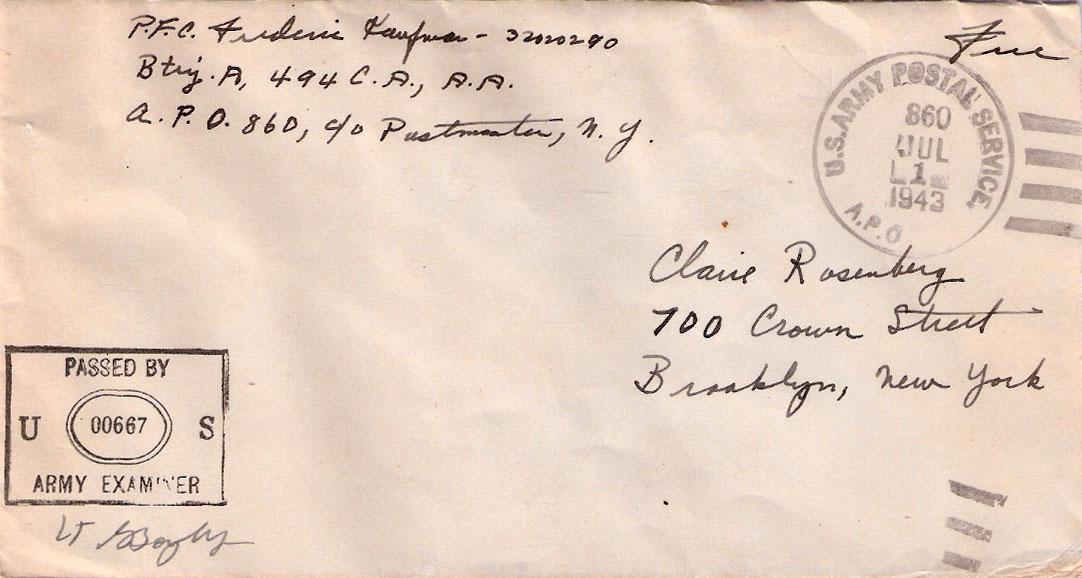 P.F.C. Frederic Kaufman - 32020290
Btry. A, 494 C.A., A.A.
A. P. O. 860, c/o Postmaster, N. Y.
Free
U.S. ARMY POSTAL SERVICE
860
JUL
1
1943
A.P.O
Claire Rosenberg
700 Crown Street
Brooklyn, New York
PASSED BY
U 00667 S
ARMY EXAMINER
Lt